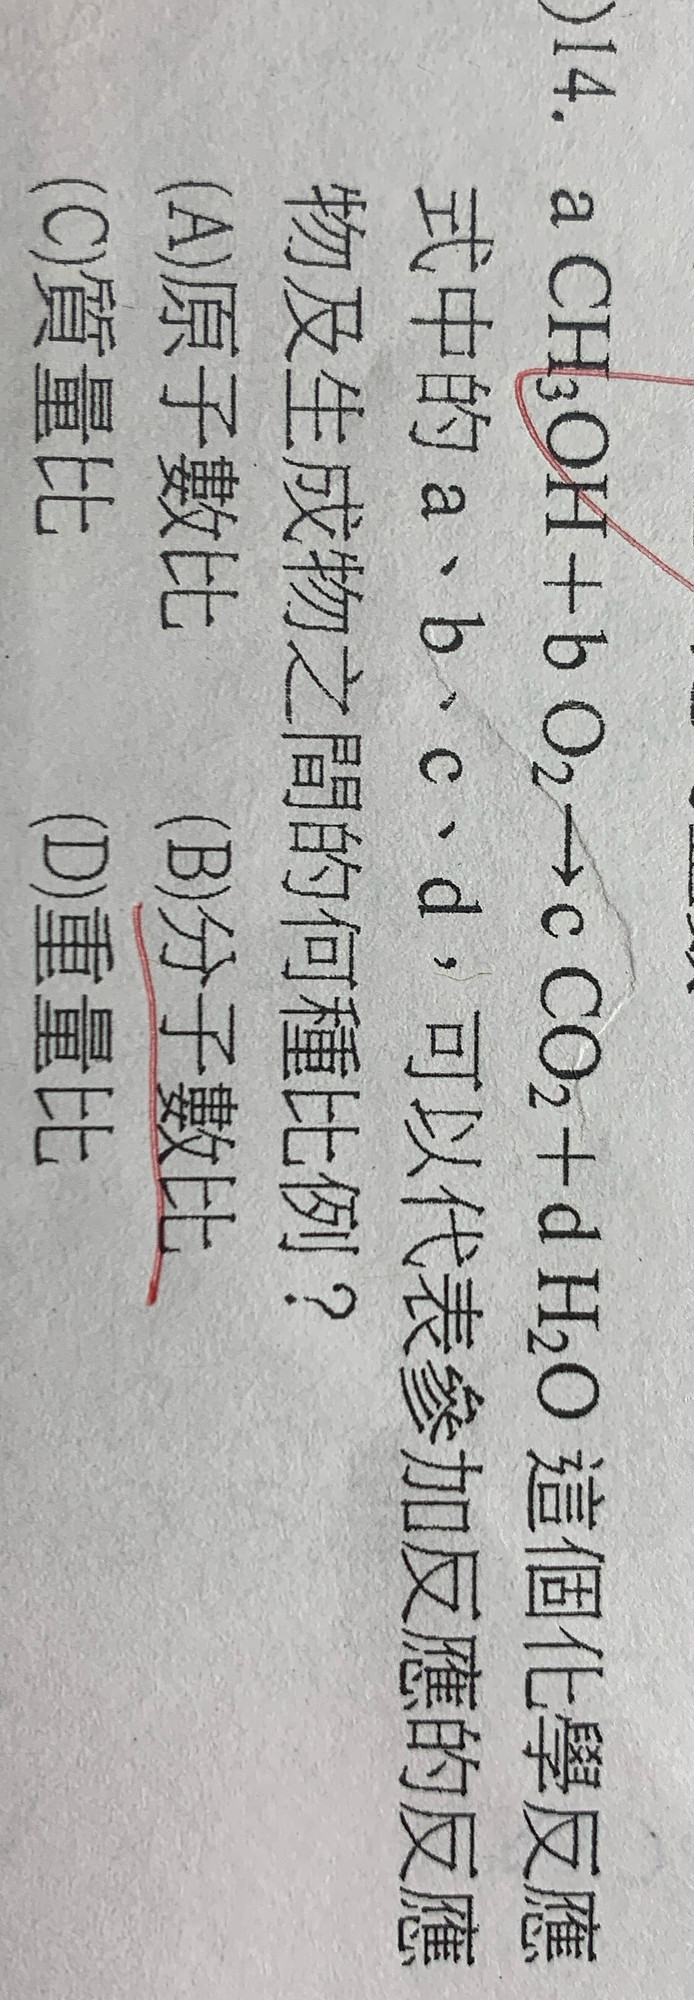 )14. a CH₃OH + b O₂→c CO₂ + d H₂O 這個化學反應
式中的 a、b、c、d，可以代表參加反應的反應
物及生成物之間的何種比例？
(A)原子數比 (B)分子數比
(C)質量比 (D)重量比